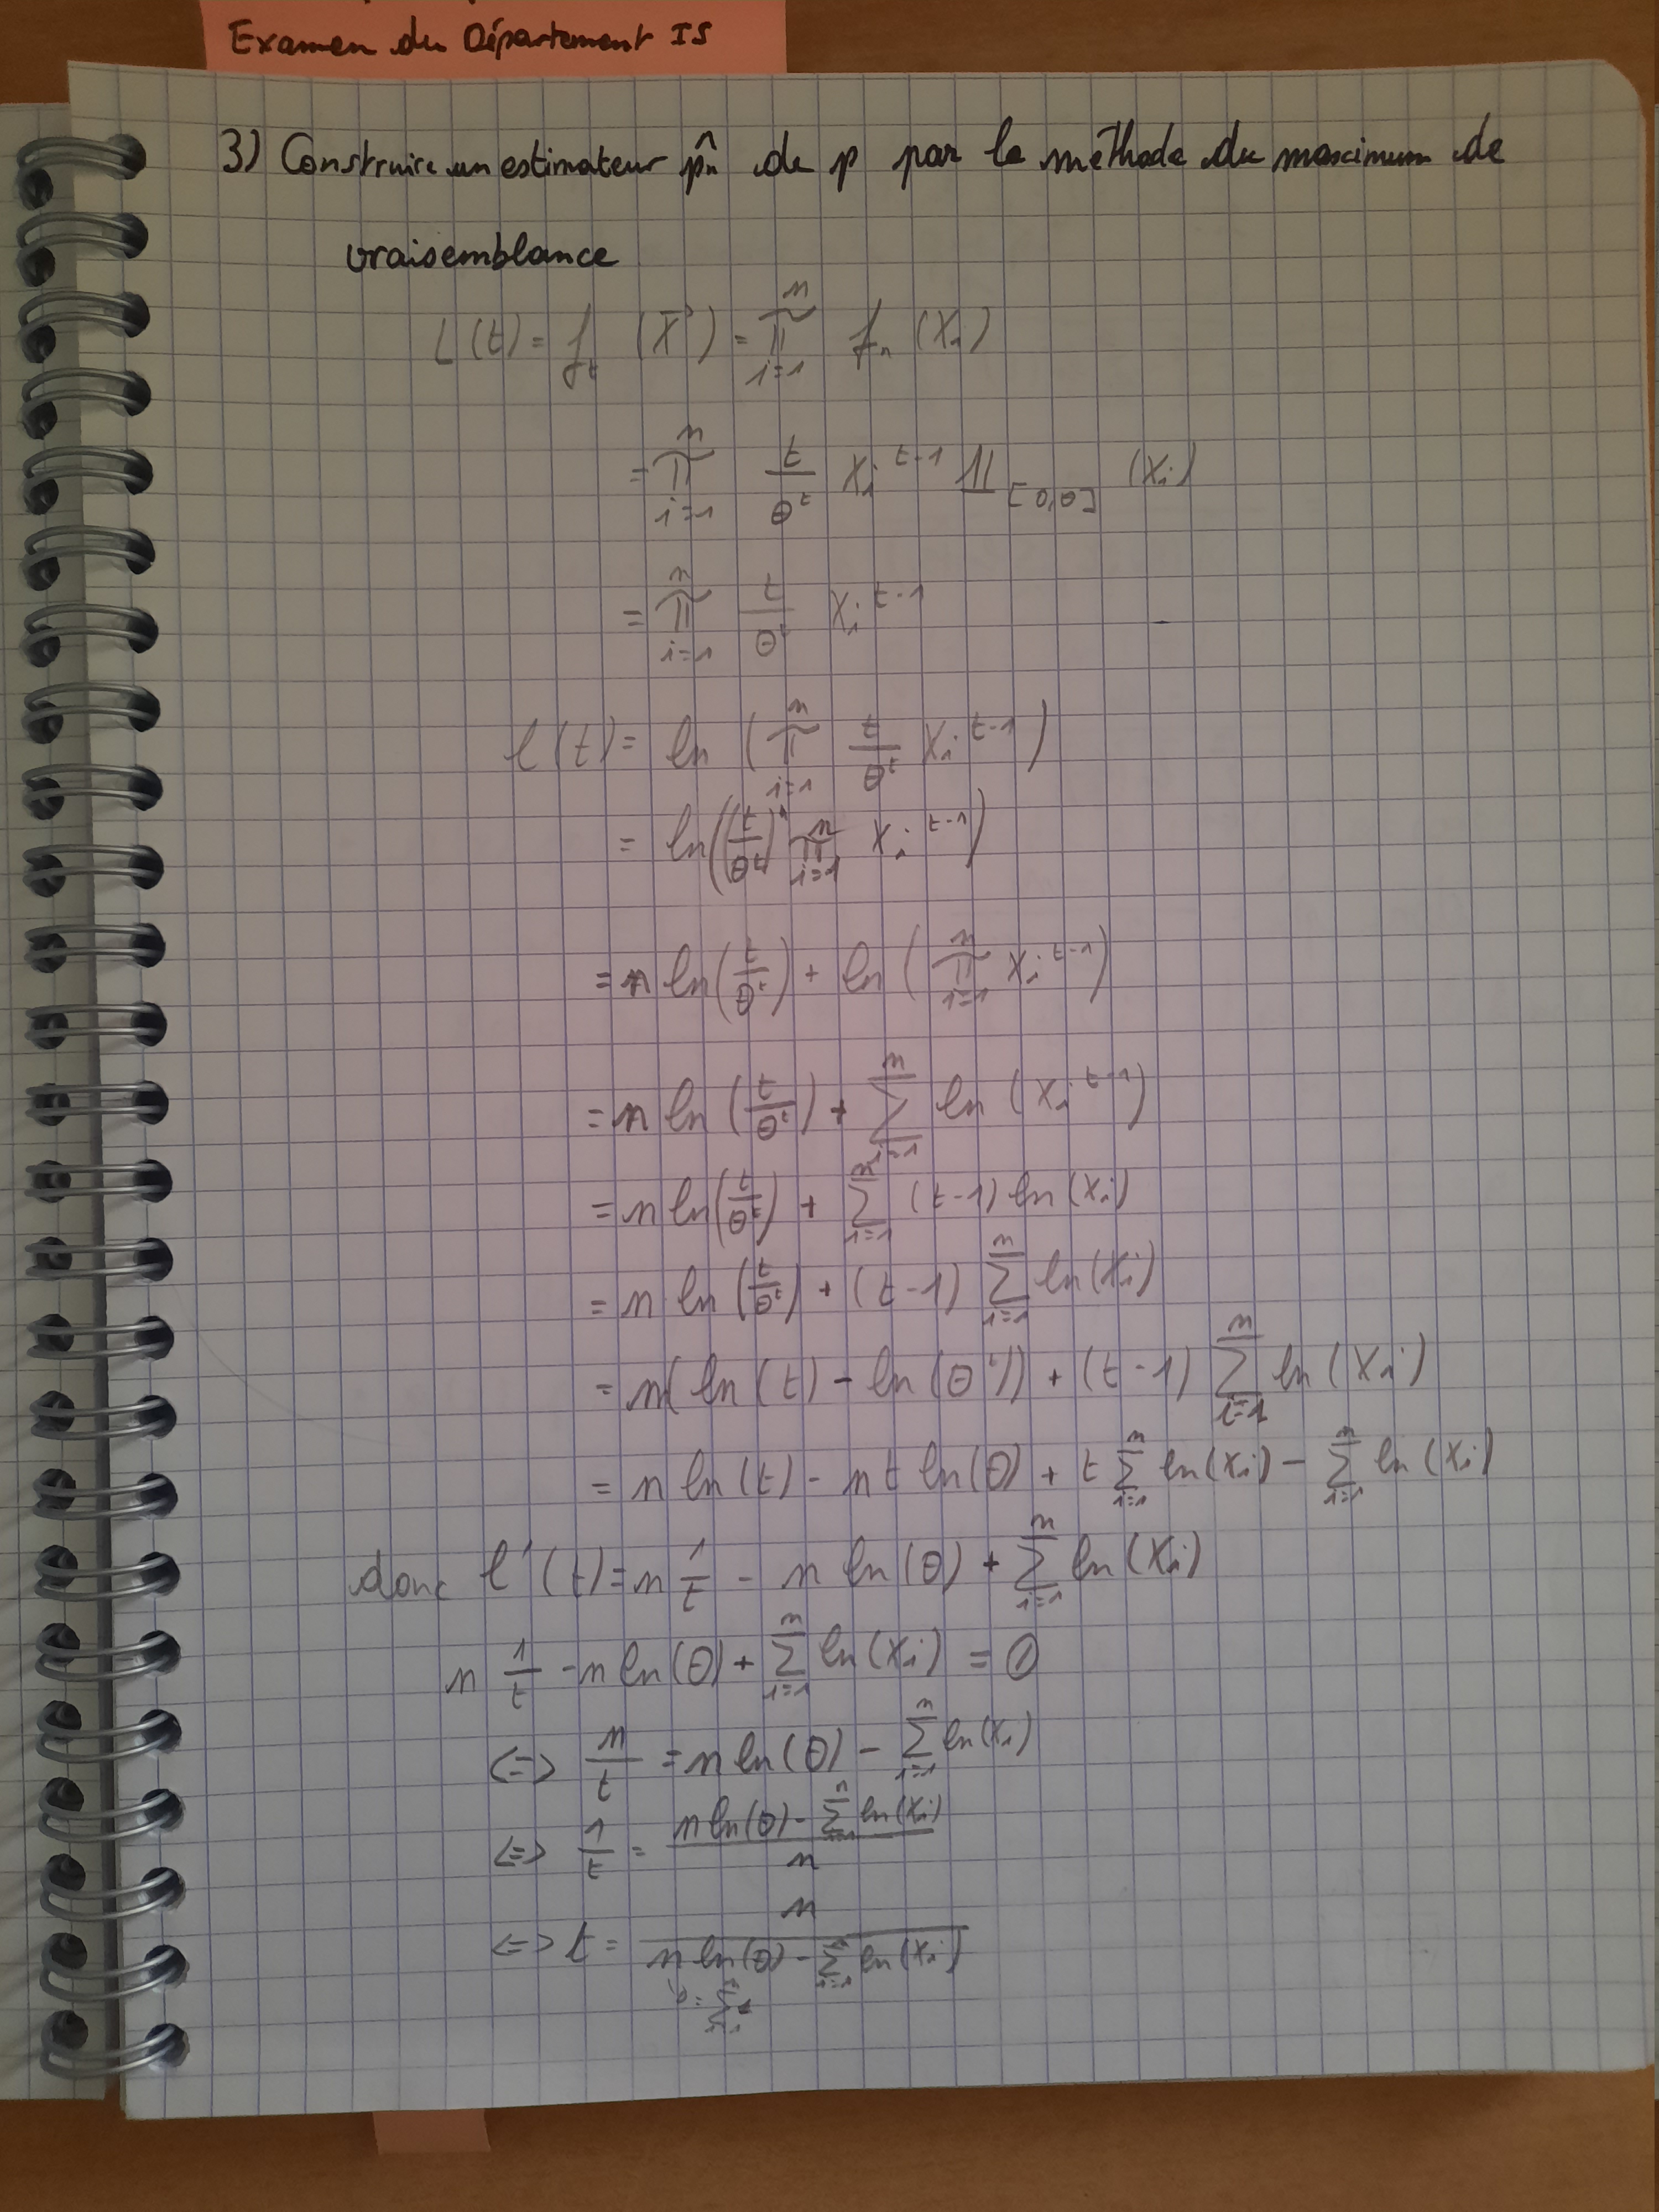 Examen du Département IS
3) Construire un estimateur p̂n de p par la méthode du maximum de
vraisemblance
L(t) = f_t (X) = ∏_{i=1}^{n} f_n (Xi)
= ∏_{i=1}^{n} t/θ^t Xi^{t-1} 𝟙_{[0,θ]} (Xi)
= ∏_{i=1}^{n} t/θ^t Xi^{t-1}
l(t) = ln (∏_{i=1}^{n} t/θ^t Xi^{t-1})
= ln((t/θ^t)^n ∏_{i=1}^{n} Xi^{t-1})
= n ln(t/θ^t) + ln (∏_{i=1}^{n} Xi^{t-1})
= n ln (t/θ^t) + ∑_{i=1}^{n} ln (Xi^{t-1})
= n ln(t/θ^t) + ∑_{i=1}^{n} (t-1) ln (Xi)
= n ln (t/θ^t) + (t-1) ∑_{i=1}^{n} ln(Xi)
= n( ln (t) - ln (θ^t)) + (t-1) ∑_{i=1}^{n} ln (Xi)
= n ln (t) - n t ln(θ) + t ∑_{i=1}^{n} ln(Xi) - ∑_{i=1}^{n} ln (Xi)
donc l'(t) = n 1/t - n ln(θ) + ∑_{i=1}^{n} ln (Xi)
n 1/t - n ln(θ) + ∑_{i=1}^{n} ln(Xi) = 0
<=> n/t = n ln(θ) - ∑_{i=1}^{n} ln(Xi)
<=> 1/t = (n ln(θ) - ∑_{i=1}^{n} ln(Xi))/n
<=> t = n/(n ln(θ) - ∑_{i=1}^{n} ln(Xi))